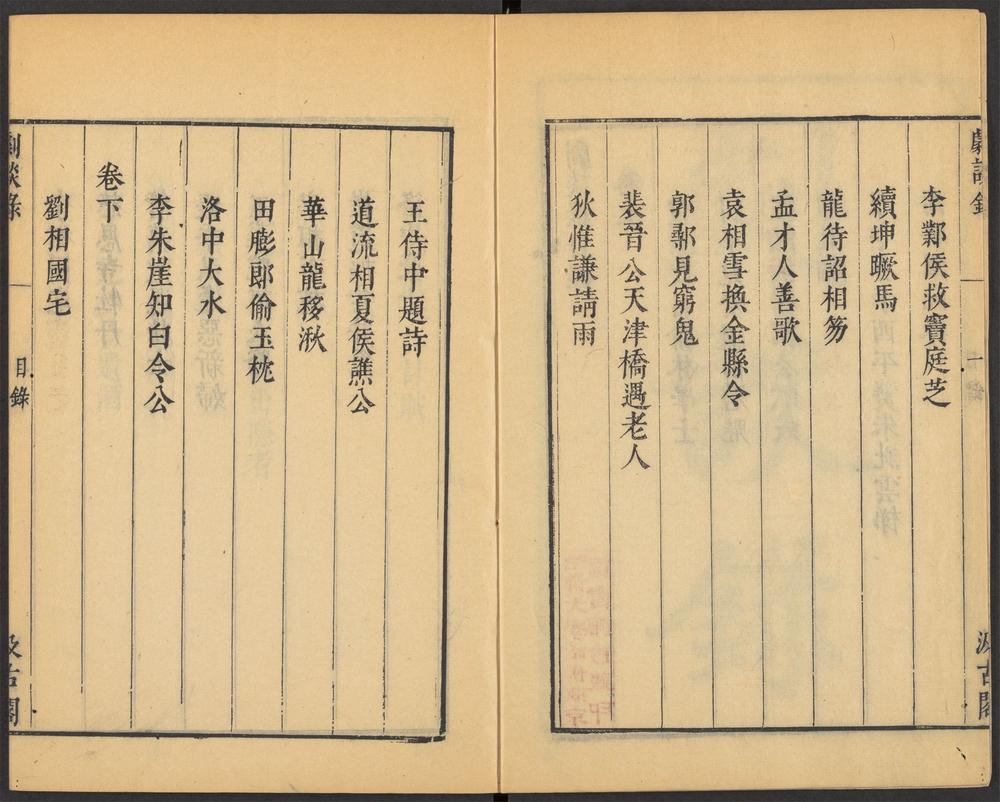 李鄴侯救竇庭芝
續坤蹶馬
龍待詔相笏
孟才人善歌
袁相雪換金縣令
郭鄩見窮鬼
裴晉公天津橋遇老人
狄惟謙請雨
王侍中題詩
道流相夏侯譙公
華山龍移湫
田膨郎偷玉枕
洛中大水
李朱崖知白令公
卷下
劉相國宅
劇談錄
目錄
汲古閣